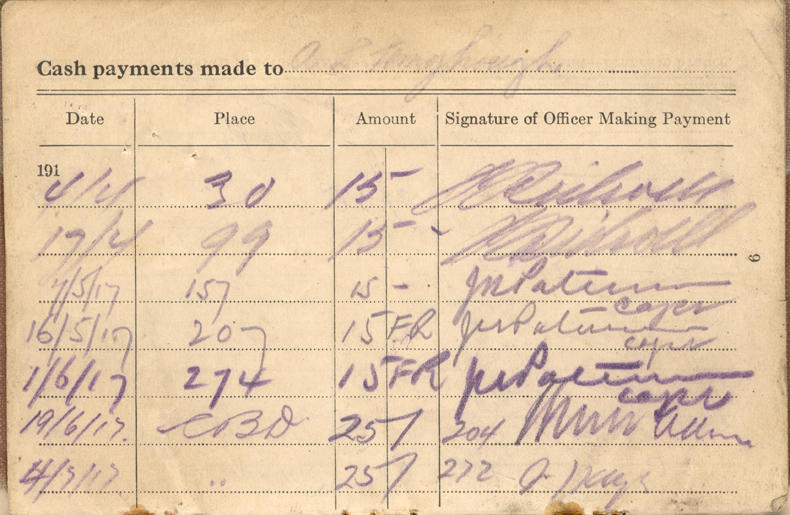 Cash payments made to A L
Date Place Amount Signature of Officer Making Payment
191
4/4 30 15 -
17/4 99 15 -
7/5/17 157 15 - J M Paterson
capt
16/5/17 207 15 FR J M Paterson
capt
1/6/17 274 15 FR J M Paterson
capt
19/6/17. CBD 25/ 204
4/7/17 " 25/ 272
9